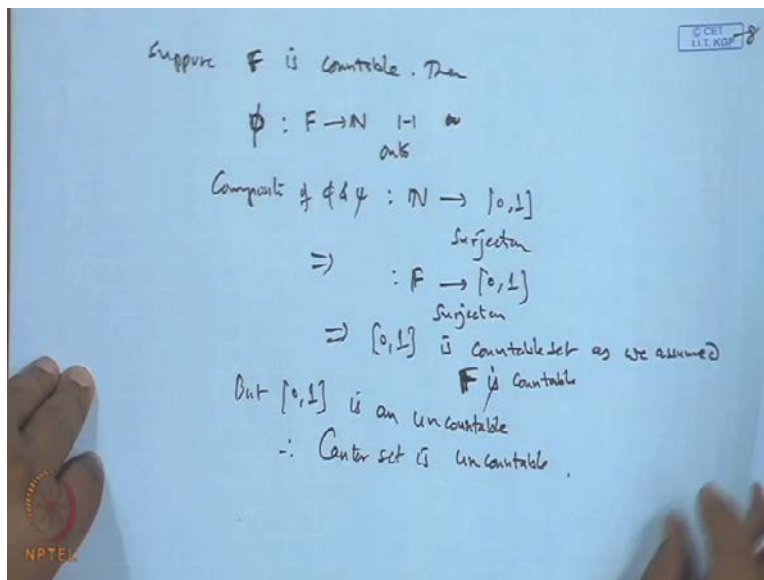 Suppose F is countable. Then
© CET
I.I.T. KGP
8
ϕ : F → N 1-1
onto
Composite of ϕ & ψ : N → [0,1]
Surjection
⇒ : F → [0,1]
Surjection
⇒ [0,1] is countable set as we assumed
F is countable
But [0,1] is an uncountable
∴ Cantor set is uncountable.
NPTEL